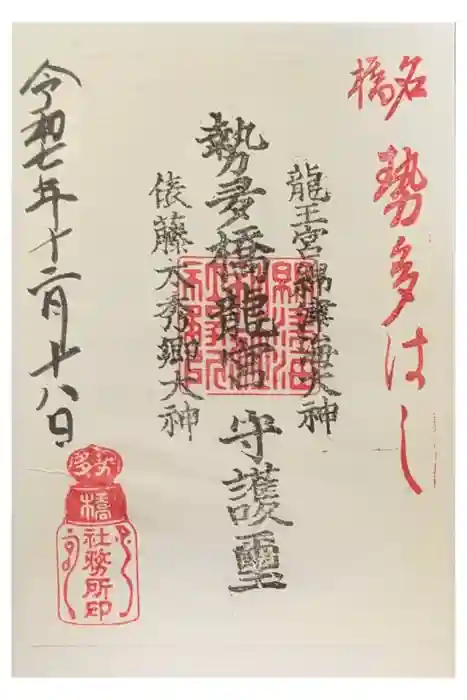 名橋
勢多はし
龍王宮綿津海大神
勢多橋龍宮守護璽
俵藤太秀郷大神
令和七年十二月十八日
勢多
橋
社務所印